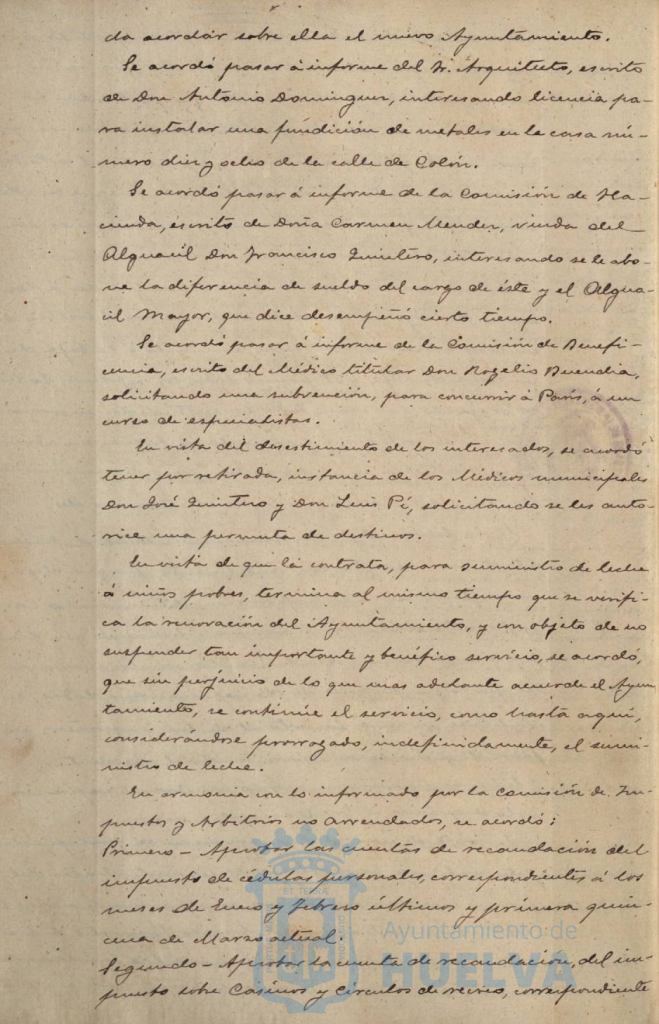 da acordar sobre ella el nuevo Ayuntamiento.
Se acordó pasar á informe del Sr. Arquitecto, escrito
de Don Antonio Dominguez, interesando licencia pa-
ra instalar una fundición de metales en la casa nú-
mero diez y ocho de la calle de Colón.
Se acordó pasar á informe de la Comisión de Ha-
cienda, escrito de Doña Carmen Mendez, viuda del
Alguacil Don Francisco Quintero, interesando se le abo-
ne la diferencia de sueldo del cargo de éste y el Algua-
cil Mayor, que dice desempeñó cierto tiempo.
Se acordó pasar á informe de la Comisión de Benefi-
cencia, escrito del Médico titular Don Rogelio Buendia,
solicitando una subvención, para concurrir á París, á un
curso de especialistas.
En vista del desestimiento de los interesados, se acordó
tener por retirada, instancia de los Médicos municipales
Don José Quintero y Don Luis Pí, solicitando se les auto-
rice una permuta de destinos.
En vista de que la contrata, para suministro de leche
á niños pobres, termina al mismo tiempo que se verifi-
ca la renovación del Ayuntamiento, y con objeto de no
suspender tan importante y benéfico servicio, se acordó,
que sin perjuicio de lo que mas adelante acuerde el Ayun-
tamiento, se continúe el servicio, como hasta aquí,
considerándose prorrogado, indefinidamente, el sumi-
nistro de leche.
En armonia con lo informado por la Comisión de Im-
puestos y Arbitrios no arrendados, se acordó:
Primero - Aprobar las cuentas de recaudación del
impuesto de cédulas personales, correspondientes á los
meses de Enero y Febrero últimos y primera quin-
cena de Marzo actual.
Segundo - Aprobar la cuenta de recaudación, del im-
puesto sobre Casinos y Circulos de recreo, correspondiente
Ayuntamiento de
HUELVA